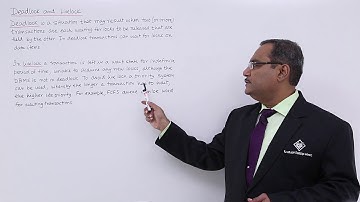 Deadlock and Livelock
Deadlock is a situation that may result when two (or more)
transactions are each waiting for locks to be released that are
held by the other. In deadlock transactions can wait for locks on
data items.
In livelock a transaction is left in a wait state for indefinite
period of time unable to acquire any new locks, although the
DBMS is not in a deadlock. To avoid livelock a priority system
can be used, whereby the longer a transaction has to wait,
the higher its priority. For example, FCFS queue can be used
for waiting transactions.